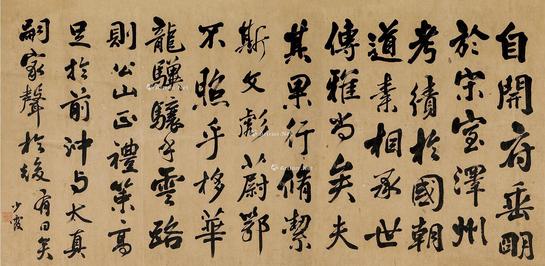 自開府垂明
於宋室澤州
考績於國朝
道素相承世
傳雅尚矣夫
其果行脩潔
斯文彪蔚鄂
不照乎移華
龍驥驤乎雲路
則公山正禮策高
足於前沖与太真
嗣家聲於後有日矣
少霞